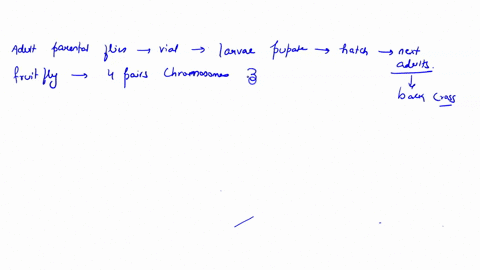 Adult parental flies → vial → larvae pupate → hatch → next
adults.
fruit fly → 4 pairs Chromosomes
↓
back Cross